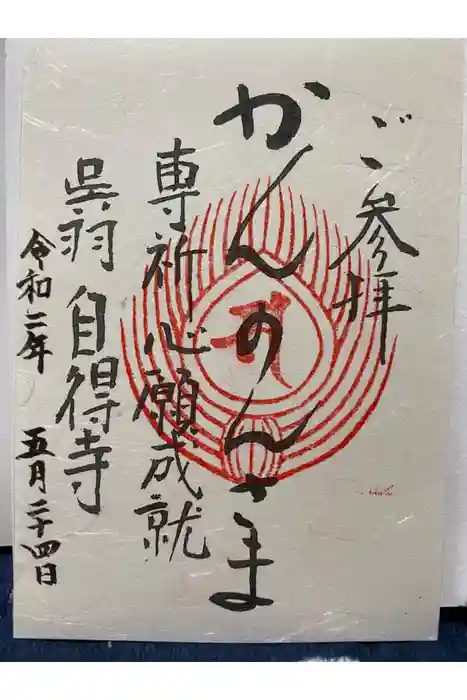 ご参拝
かんのんさま
専祈心願成就
呉羽 自得寺
令和二年 五月二十四日